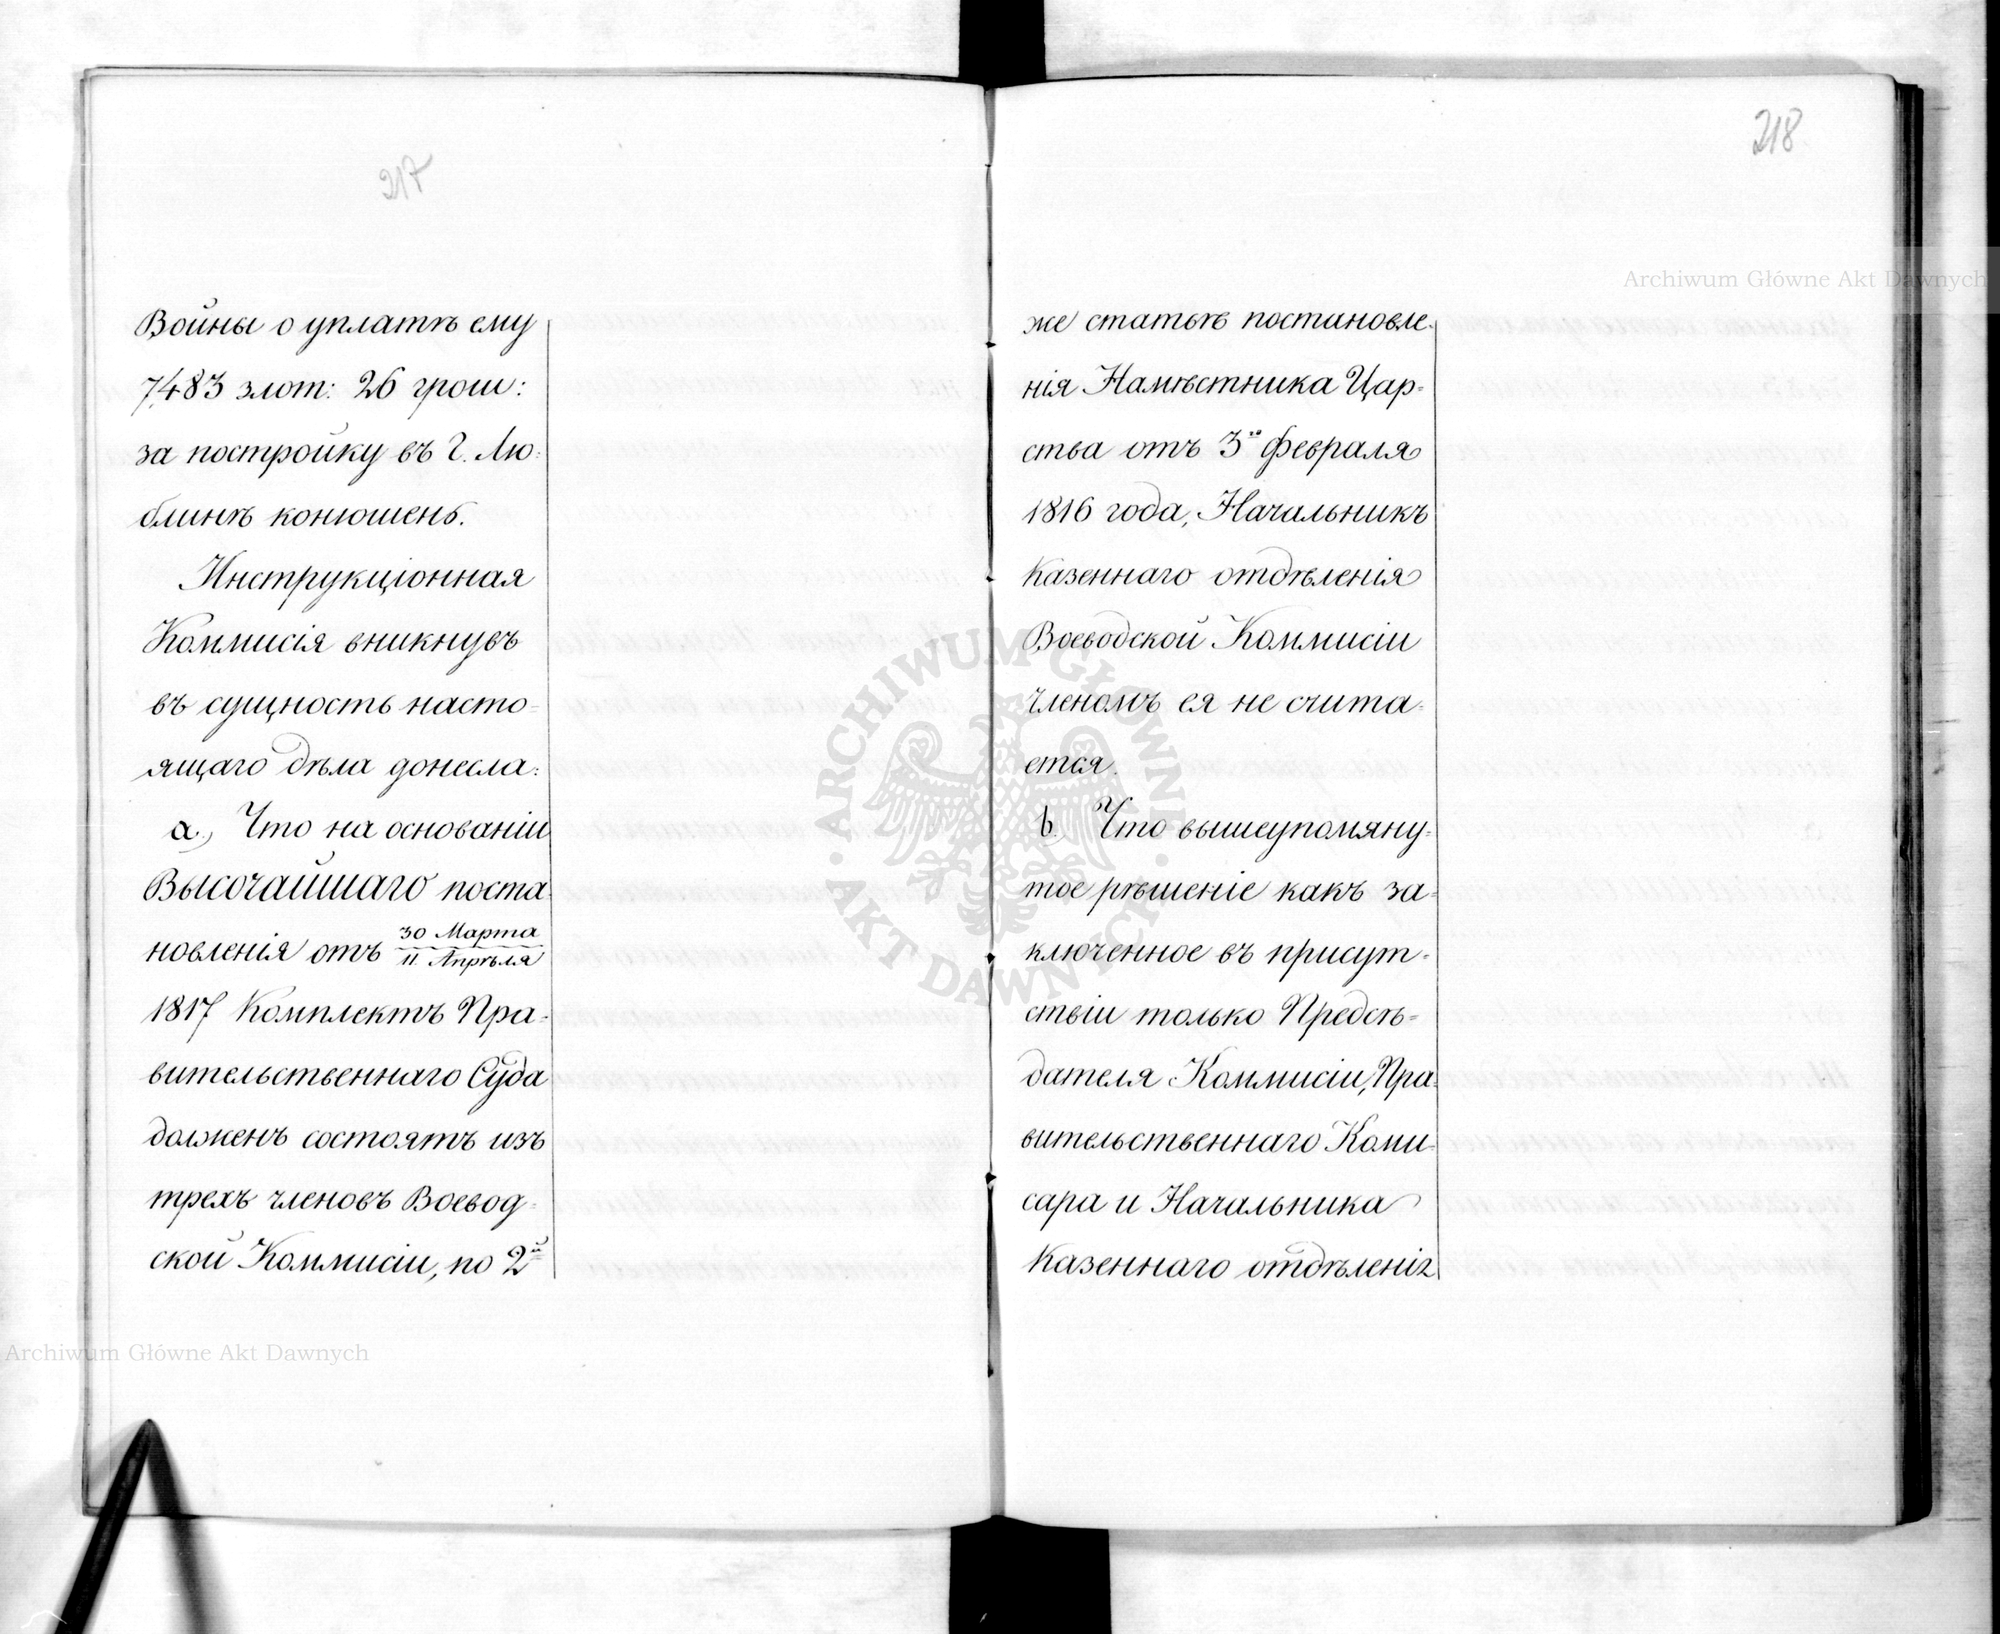 217
Войны о уплатѣ ему
7,483 злот: 26 грош:
за постройку въ Г. Лю-
блинѣ конюшень.
Инструкціонная
Коммисія вникнувъ
въ сущность насто-
ящаго дѣла донесла:
a., Что на основаніи
Высочайшаго поста-
новленія отъ 30 Марта / 11 Апрѣля
1817 Комплектъ Пра-
вительственнаго Суда
долженъ состоять изъ
трехъ членовъ Воевод-
ской Коммисіи, по 2й
218
же статьѣ постановле-
нія Намѣстника Цар-
ства отъ 3го Февраля
1816 года, Начальникъ
Казеннаго отдѣленія
Воеводской Коммисіи
членомъ ея не счита-
ется.
b. Что вышеупомяну-
тое рѣшеніе какъ за-
ключенное въ присут-
ствіи только Предсѣ-
дателя Коммисіи, Пра-
вительственнаго Коми-
сара и Начальника
Казеннаго отдѣленія
Archiwum Główne Akt Dawnych
Archiwum Główne Akt Dawnych
ARCHIWUM GŁÓWNE AKT DAWNYCH